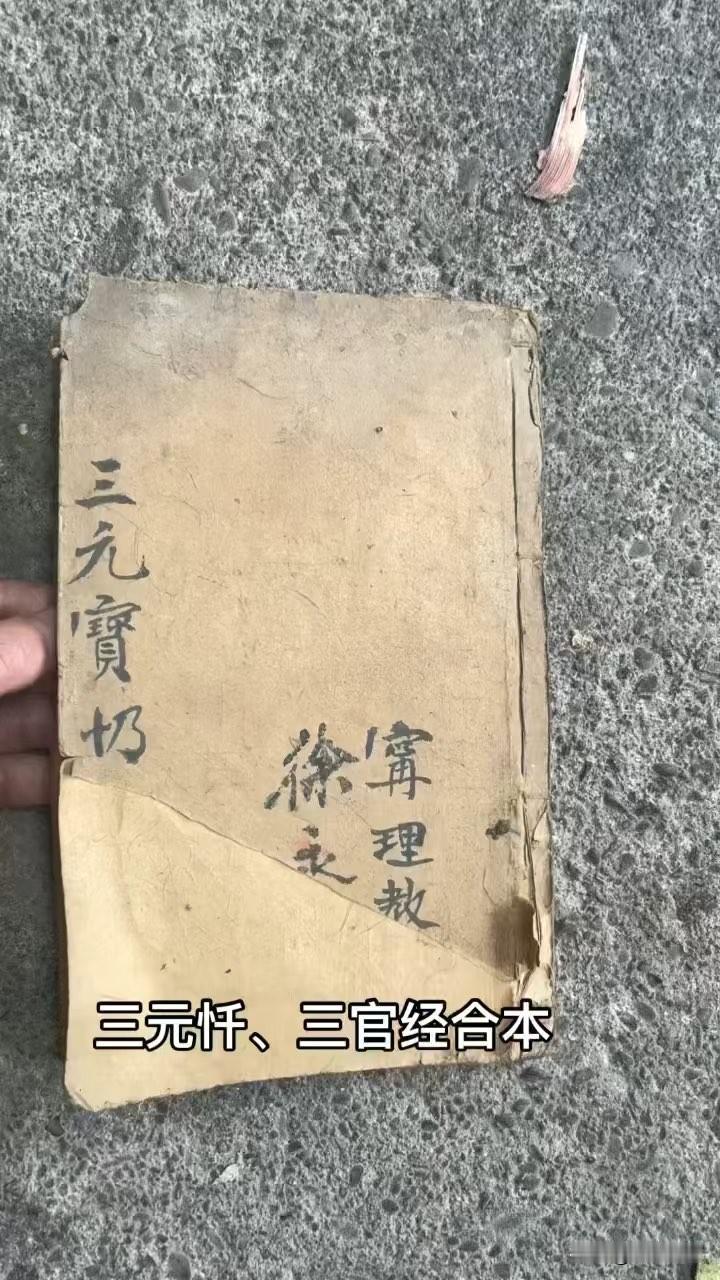 理教
徐永
三元寶
三元忏、三官经合本